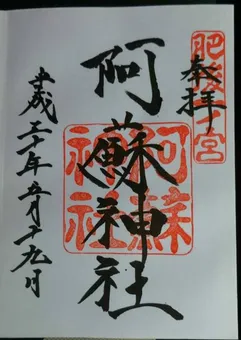 奉拝
肥後一宮
阿蘇神社
阿蘇神社
平成三十年五月十九日